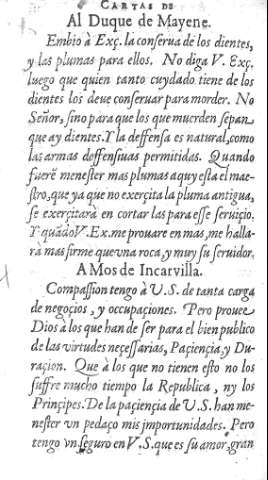 CARTAS DE
Al Duque de Mayene.
Embio à Exç. la conserua de los dientes,
y las plumas para ellos. No diga V. Exç.
luego que quien tanto cuydado tiene de los
dientes los deue conseruar para morder. No
Señor, sino para que los que muerden sepan
que ay dientes. Y la deffensa es natural, como
las armas deffensiuas permitidas. Quando
fuerẽ menester mas plumas aquy esta el mae-
stro, que ya que no exerçita la pluma antigua,
se exerçitarà en cortar las para esse seruiçio.
Y quãdo V. Ex. me prouare en mas, me halla-
rà mas firme que vna roca, y muy su seruidor.
A Mos de Incarvilla.
Compassion tengo à V.S. de tanta carga
de negoçios, y occupaçiones. Pero prouee
Dios à los que han de ser para el bien publico
de las virtudes neçessarias, Paçiençia, y Du-
raçion. Que à los que no tienen esto no los
suffre mucho tiempo la Republica, ny los
Prinçipes. De la paçiençia de V.S. han me-
nester vn pedaço mis importunidades. Pero
tengo vn seguro en V.S. que es su amor, gran